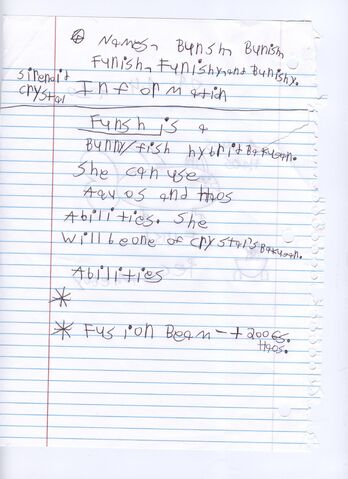 Names, Bunsh, Bunish,
Funish, Funishy, and Bunishy.
Sirenoid
Crystal Information
Funsh is a
Bunny/fish hybrid Bakugan.
She can use
Aquos and Haos
Abilities. She
will be one of Crystal's Bakugan.
Abilities
*
* Fusion Beam - +200Gs.
Haos.